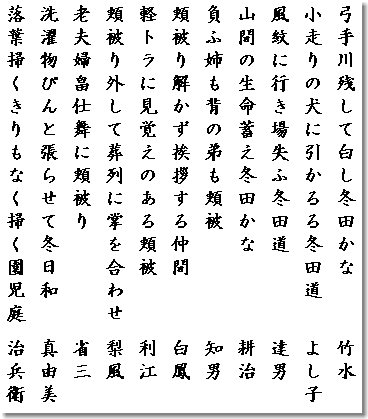 弓手川残して白し冬田かな 竹水
小走りの犬に引かるる冬田道 よし子
風紋に行き場失ふ冬田道 達男
山間の生命蓄え冬田かな 耕治
負ふ姉も背の弟も頬被 知男
頬被り解かず挨拶する仲間 白鳳
軽トラに見覚えのある頬被 利江
頬被り外して葬列に掌を合わせ 梨風
老夫婦畠仕舞に頬被り 省三
洗濯物ぴんと張らせて冬日和 真由美
落葉掃くきりもなく掃く園児庭 治兵衛